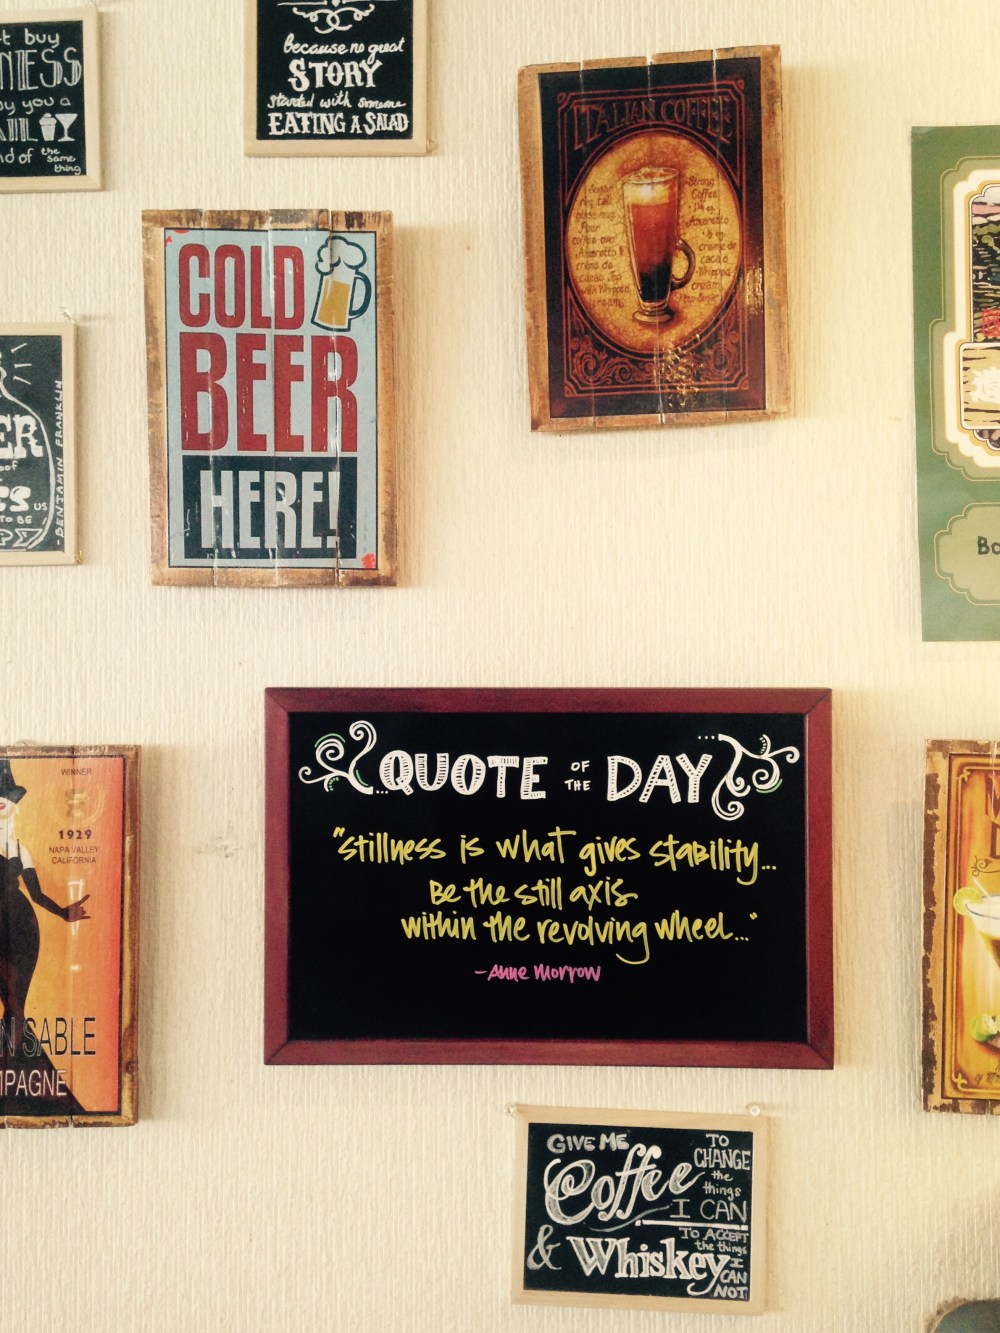 t buy
NESS
y you a
nd of the
same
thing
because no great
STORY
started with someone
EATING A SALAD
ITALIAN COFFEE
Strong
Coffee
Amaretto
creme de
cacao
Whipped
cream
COLD
BEER
HERE!
ER
US
TO BE
-BENJAMIN FRANKLIN
Ba
QUOTE OF THE DAY
"Stillness is what gives stability...
Be the still axis
within the revolving wheel..."
-Anne Morrow
WINNER
1929
NAPA VALLEY
CALIFORNIA
N SABLE
MPAGNE
GIVE ME
Coffee
TO
CHANGE
the
things
I CAN
& Whiskey
TO ACCEPT
the things
I
CAN
NOT